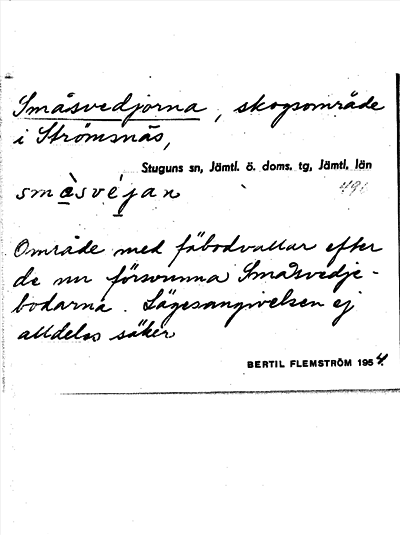 Småsvedjorna, skogsområde
i Strömsnäs,
Stuguns sn, Jämtl. ö. doms. tg, Jämtl. län
smàsvéjan
Område med fäbodvallar efter
de nu försvunna Småsvedje-
bodarna. Lägesangivelsen ej
alldeles säker
BERTIL FLEMSTRÖM 1954.